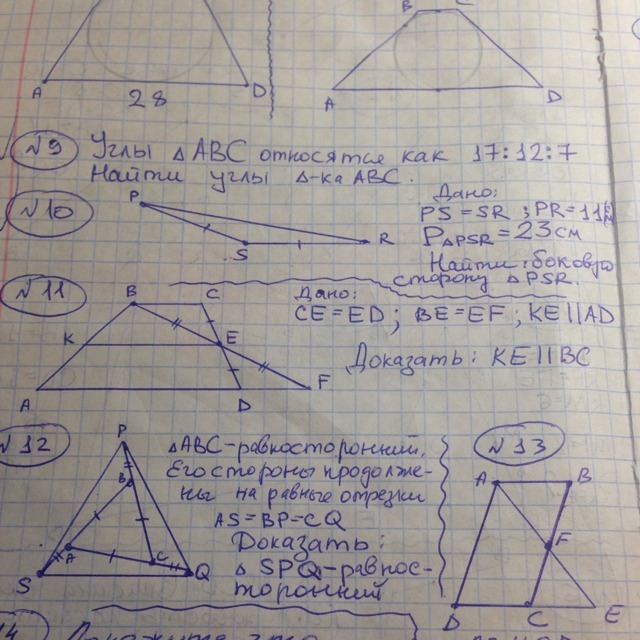 B C
A D
28
A D
№9 Углы △ABC относятся как 17:12:7
Найти углы △-ка ABC.
№10
P
S
R
Дано:
PS=SR; PR=11
P△PSR=23см
Найти: боковую
сторону △PSR.
№11
B C
K E
F
A D
Дано:
CE=ED; BE=EF; KE||AD
Доказать: KE||BC
№12
P
B
A C
S Q
△ABC-равносторонний.
Его стороны продолже-
ны на равные отрезки
AS=BP=CQ
Доказать:
△SPQ-равнос-
торонний
№13
A B
F
D C E
14